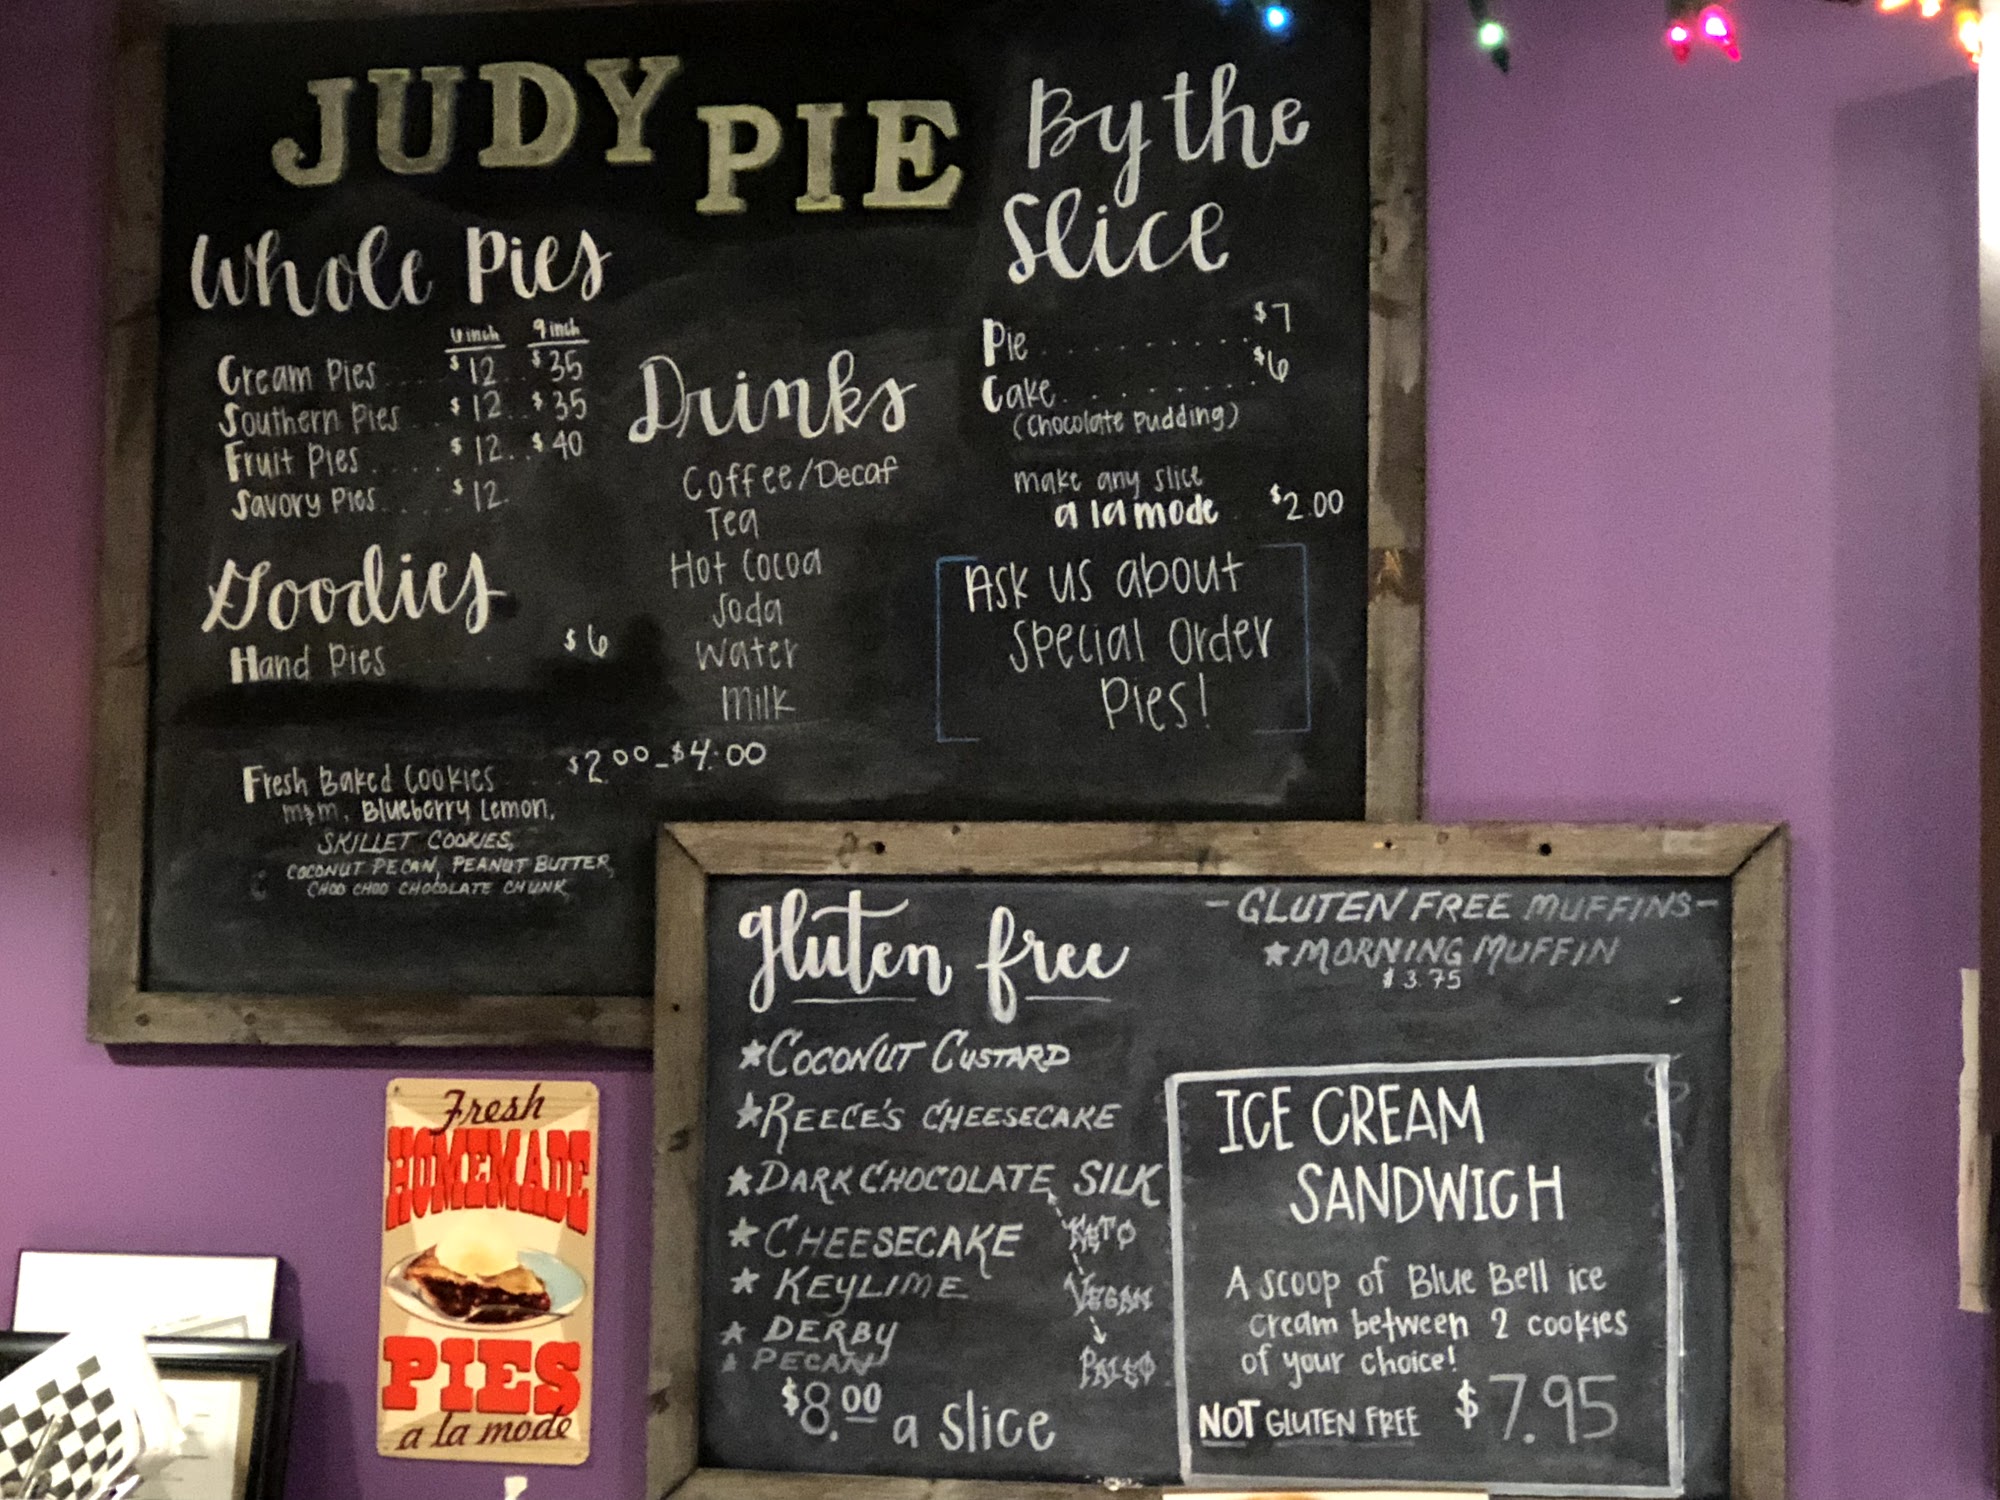 JUDY PIE
Whole Pies
6 inch 9 inch
Cream Pies .... $12 .. $35
Southern Pies .. $12 .. $35
Fruit Pies ..... $12 .. $40
Savory Pies .... $12.
Goodies
Hand Pies $6
Fresh Baked Cookies $2.00-$4.00
m&m, Blueberry Lemon,
SKILLET COOKIES,
COCONUT PECAN, PEANUT BUTTER,
CHOO CHOO CHOCOLATE CHUNK
Drinks
Coffee/Decaf
Tea
Hot Cocoa
Soda
Water
Milk
By the
Slice
Pie .......... $7
Cake .......... $6
(Chocolate Pudding)
make any slice
a la mode $2.00
Ask us about
Special Order
Pies!
gluten free
★COCONUT CUSTARD
★REECE'S CHEESECAKE
★DARK CHOCOLATE SILK
★CHEESECAKE
★KEYLIME
★DERBY
★PECAN
$8.00 a slice
KETO
VEGAN
PALEO
-GLUTEN FREE MUFFINS-
★MORNING MUFFIN
$3.75
ICE CREAM
SANDWICH
A scoop of Blue Bell ice
cream between 2 cookies
of your choice!
NOT GLUTEN FREE $7.95
Fresh
HOMEMADE
PIES
a la mode